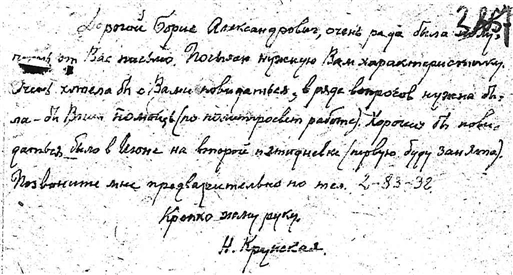 Дорогой Борис Александрович, очень рада была полу-
чить от Вас письмо. Посылаю нужную Вам характеристику.
Очень хотела бы с Вами повидаться, в ряде вопросов нужна бы-
ла-бы Ваша помощь (по политпросвет работе). Хорошо бы пови-
даться было в Июне на второй пятидневке (первую буду занята).
Позвоните мне предварительно по тел. 2-83-32.
Крепко жму руку.
Н. Крупская.